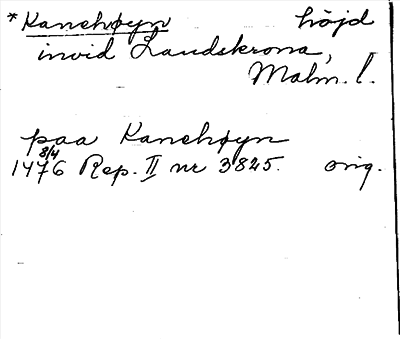 *Kanehøyn höjd
invid Landskrona,
Malm. l.
paa Kanehøyn
8/4
1476 Rep. II nr 3825. orig.